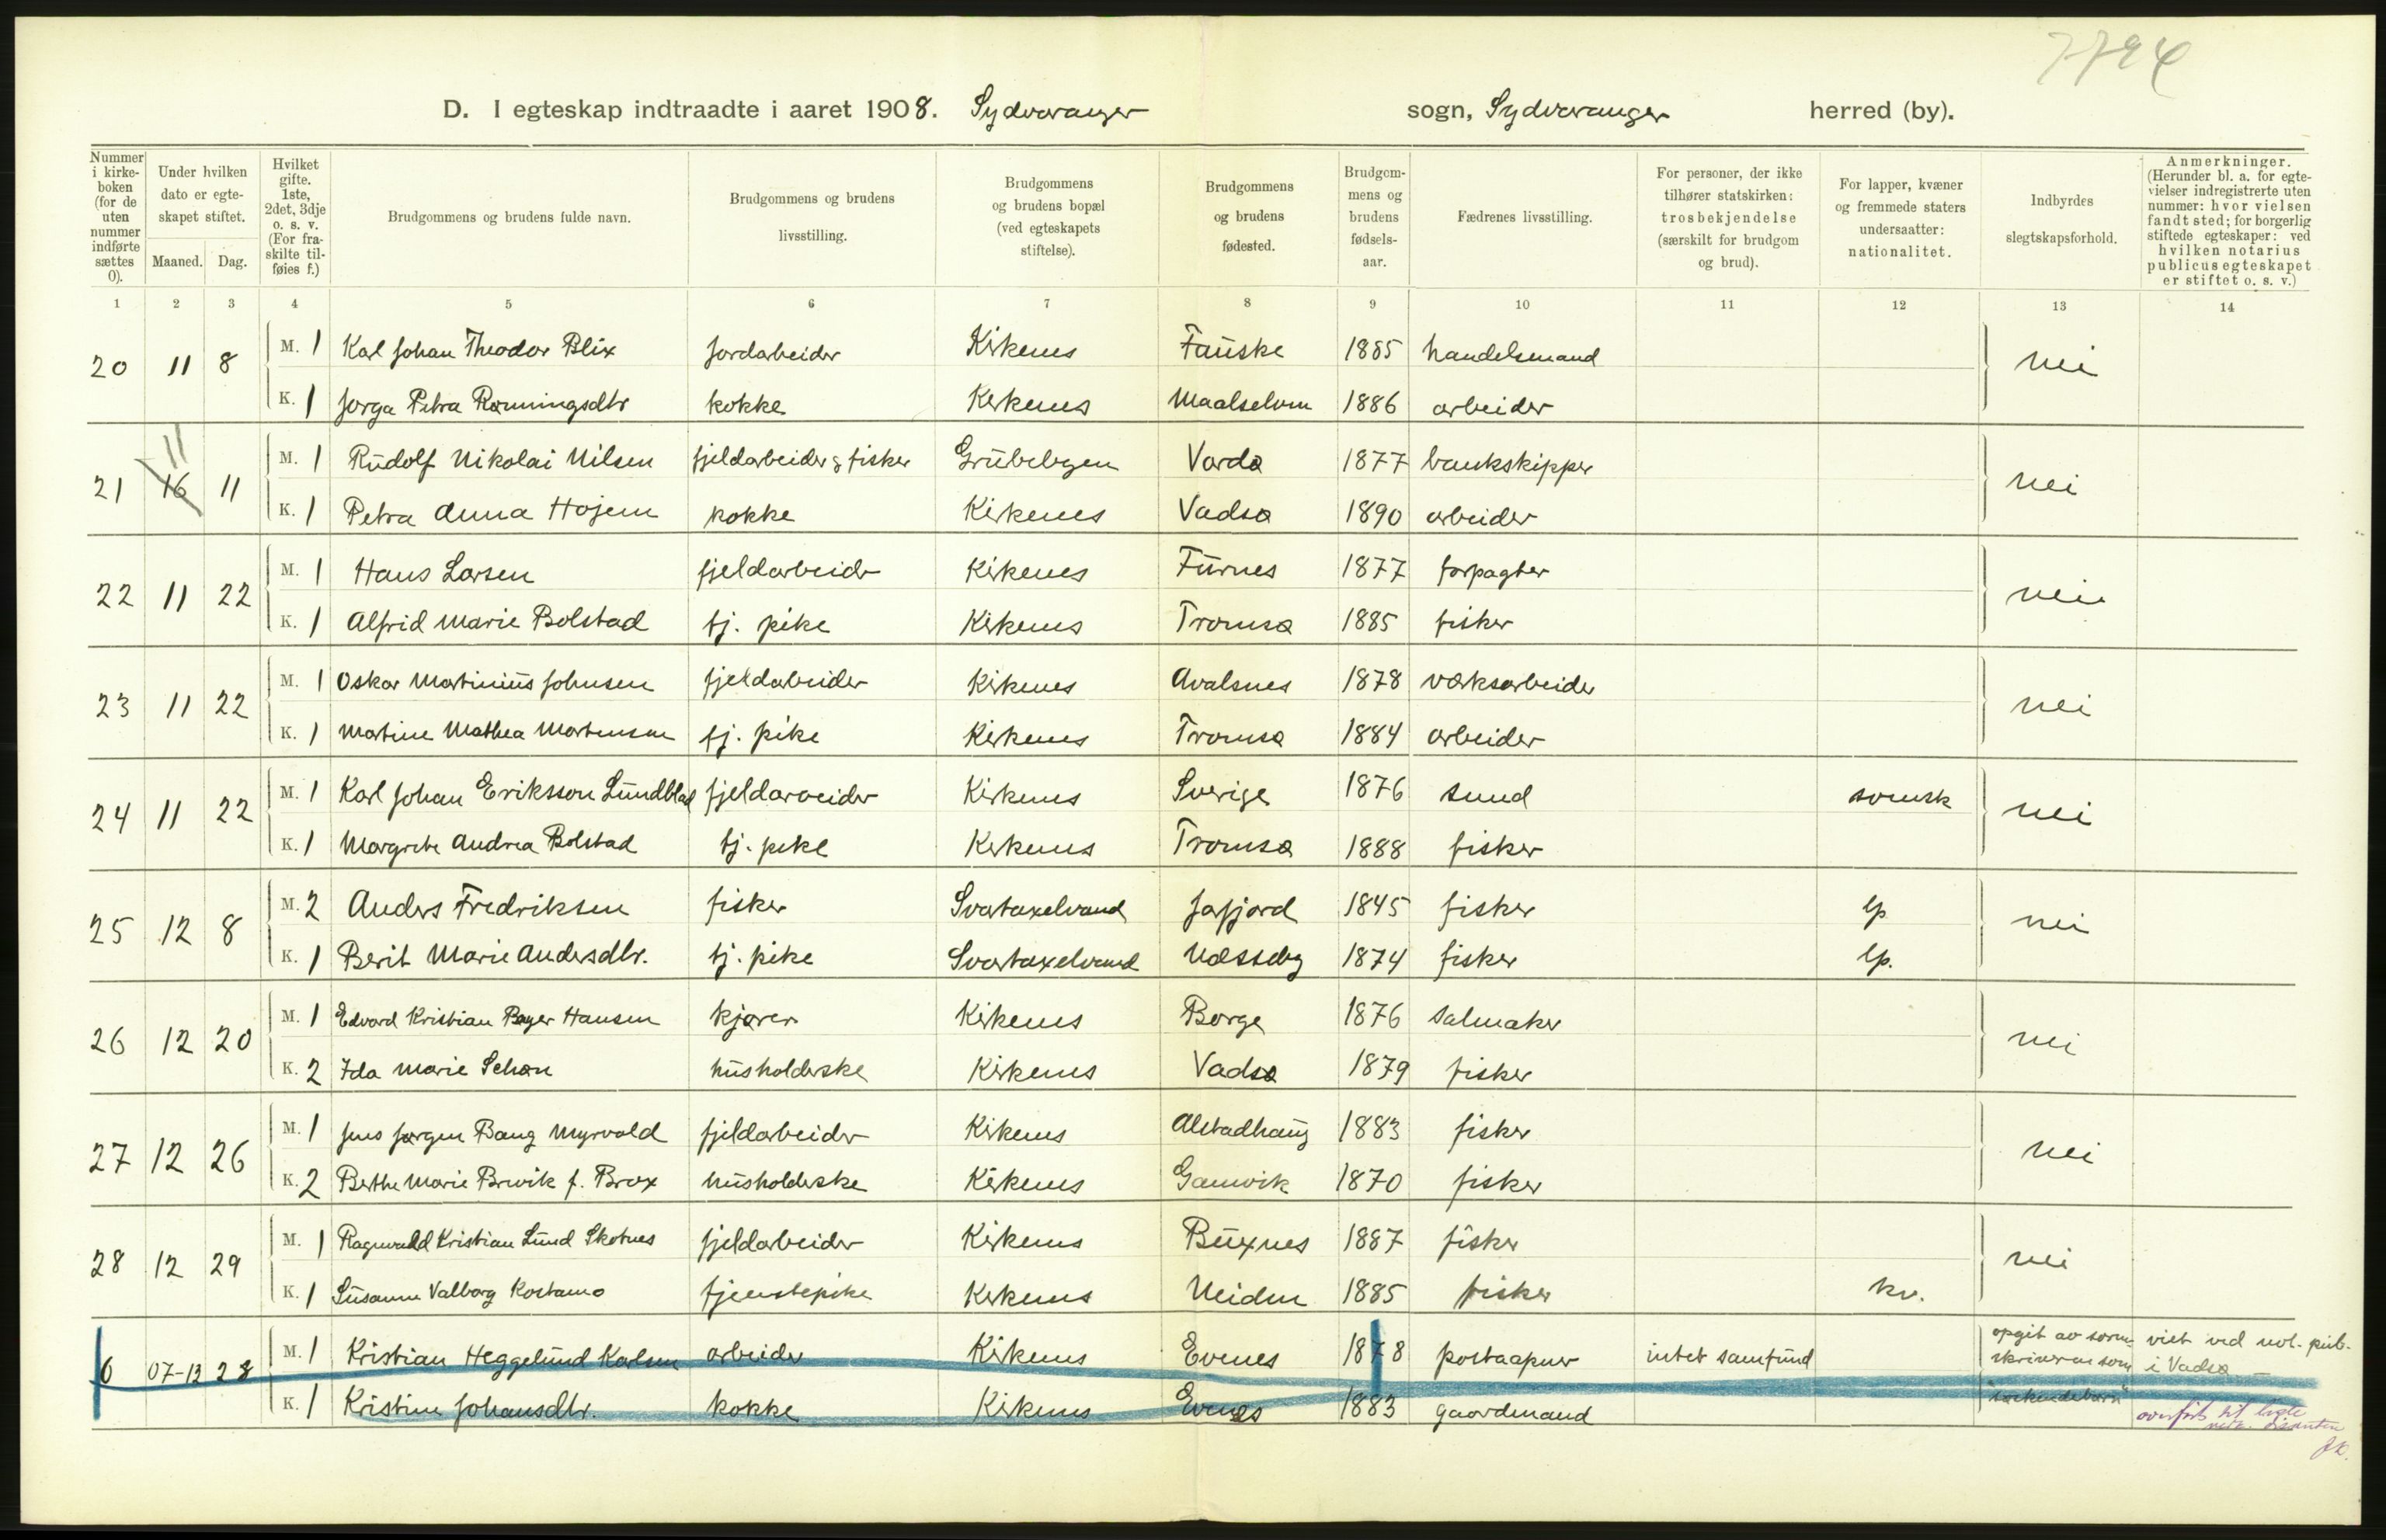 7724
D. I egteskap indtraadte i aaret 1908. Sydvaranger sogn, Sydvaranger herred (by).
Nummer i kirke-boken (for de uten nummer indførte sættes 0). | Under hvilken dato er egte-skapet stiftet. Maaned. Dag. | Hvilket gifte. 1ste, 2det, 3dje o. s. v. (For fra-skilte til-føies f.) | Brudgommens og brudens fulde navn. | Brudgommens og brudens livsstilling. | Brudgommens og brudens bopæl (ved egteskapets stiftelse). | Brudgommens og brudens fødested. | Brudgom-mens og brudens fødsels-aar. | Fædrenes livsstilling. | For personer, der ikke tilhører statskirken: trosbekjendelse (særskilt for brudgom og brud). | For lapper, kvæner og fremmede staters undersaatter: nationalitet. | Indbyrdes slegtskapsforhold. | Anmerkninger. (Herunder bl. a. for egte-vielser indregistrerte uten nummer: hvor vielsen fandt sted; for borgerlig stiftede egteskaper: ved hvilken notarius publicus egteskapet er stiftet o. s. v.)
1 2 3 4 5 6 7 8 9 10 11 12 13 14
20 11 8 M. 1 Karl Johan Theodor Blix Jordarbeider Kirkenes Fauske 1885 handelsmand nei
K. 1 Jørga Petra Rønningsdtr kokke Kirkenes Maalselven 1886 arbeider
11
21 16 11 M. 1 Rudolf Nikolai Nilsen fjeldarbeider & fisker Grubebyen Vardø 1877 bankskipper nei
K. 1 Petra Anna Højem kokke Kirkenes Vadsø 1890 arbeider
22 11 22 M. 1 Hans Larsen fjeldarbeider Kirkenes Furnes 1877 forpagter nei
K. 1 Alfrid Marie Bolstad tj. pike Kirkenes Tromsø 1885 fisker
23 11 22 M. 1 Oskar Martinius Johnsen fjeldarbeider Kirkenes Avalsnes 1878 væksarbeider nei
K. 1 Martine Mathea Mortensen tj. pike Kirkenes Tromsø 1884 arbeider
24 11 22 M. 1 Karl Johan Eriksson Lundblad fjeldarbeider Kirkenes Sverige 1876 smed svensk nei
K. 1 Margrete Andrea Bolstad tj. pike Kirkenes Tromsø 1888 fisker
25 12 8 M. 2 Anders Fredriksen fisker Svartaxelvand Jafjord 1845 fisker lp nei
K. 1 Berit Marie Andersdtr. tj. pike Svartaxelvand Næsseby 1874 fisker lp.
26 12 20 M. 1 Edvard Kristian Bayer Hansen kjører Kirkenes Borge 1876 salmaker nei
K. 2 Ida Marie Schøn husholderske Kirkenes Vadsø 1879 fisker
27 12 26 M. 1 Jens Jørgen Bang Myrvold fjeldarbeider Kirkenes Alstadhaug 1883 fisker nei
K. 2 Berthe Marie Brevik f. Brox husholderske Kirkenes Gamvik 1870 fisker
28 12 29 M. 1 Ragnvald Kristian Lund Skotnes fjeldarbeider Kirkenes Buxnes 1887 fisker nei
K. 1 Susanne Valborg Kostamo tjenstepike Kirkenes Neiden 1885 fisker kv.
0 07-13 28 M. 1 Kristian Heggelund Karlsen arbeider Kirkenes Evenes 1878 postaapner intet samfund opgit av soren-skriveren som viet ved not. pub. i Vadsø
K. 1 Kristine Johansdtr. kokke Kirkenes Evenes 1883 gaardmand "søskendebarn" overført til liste